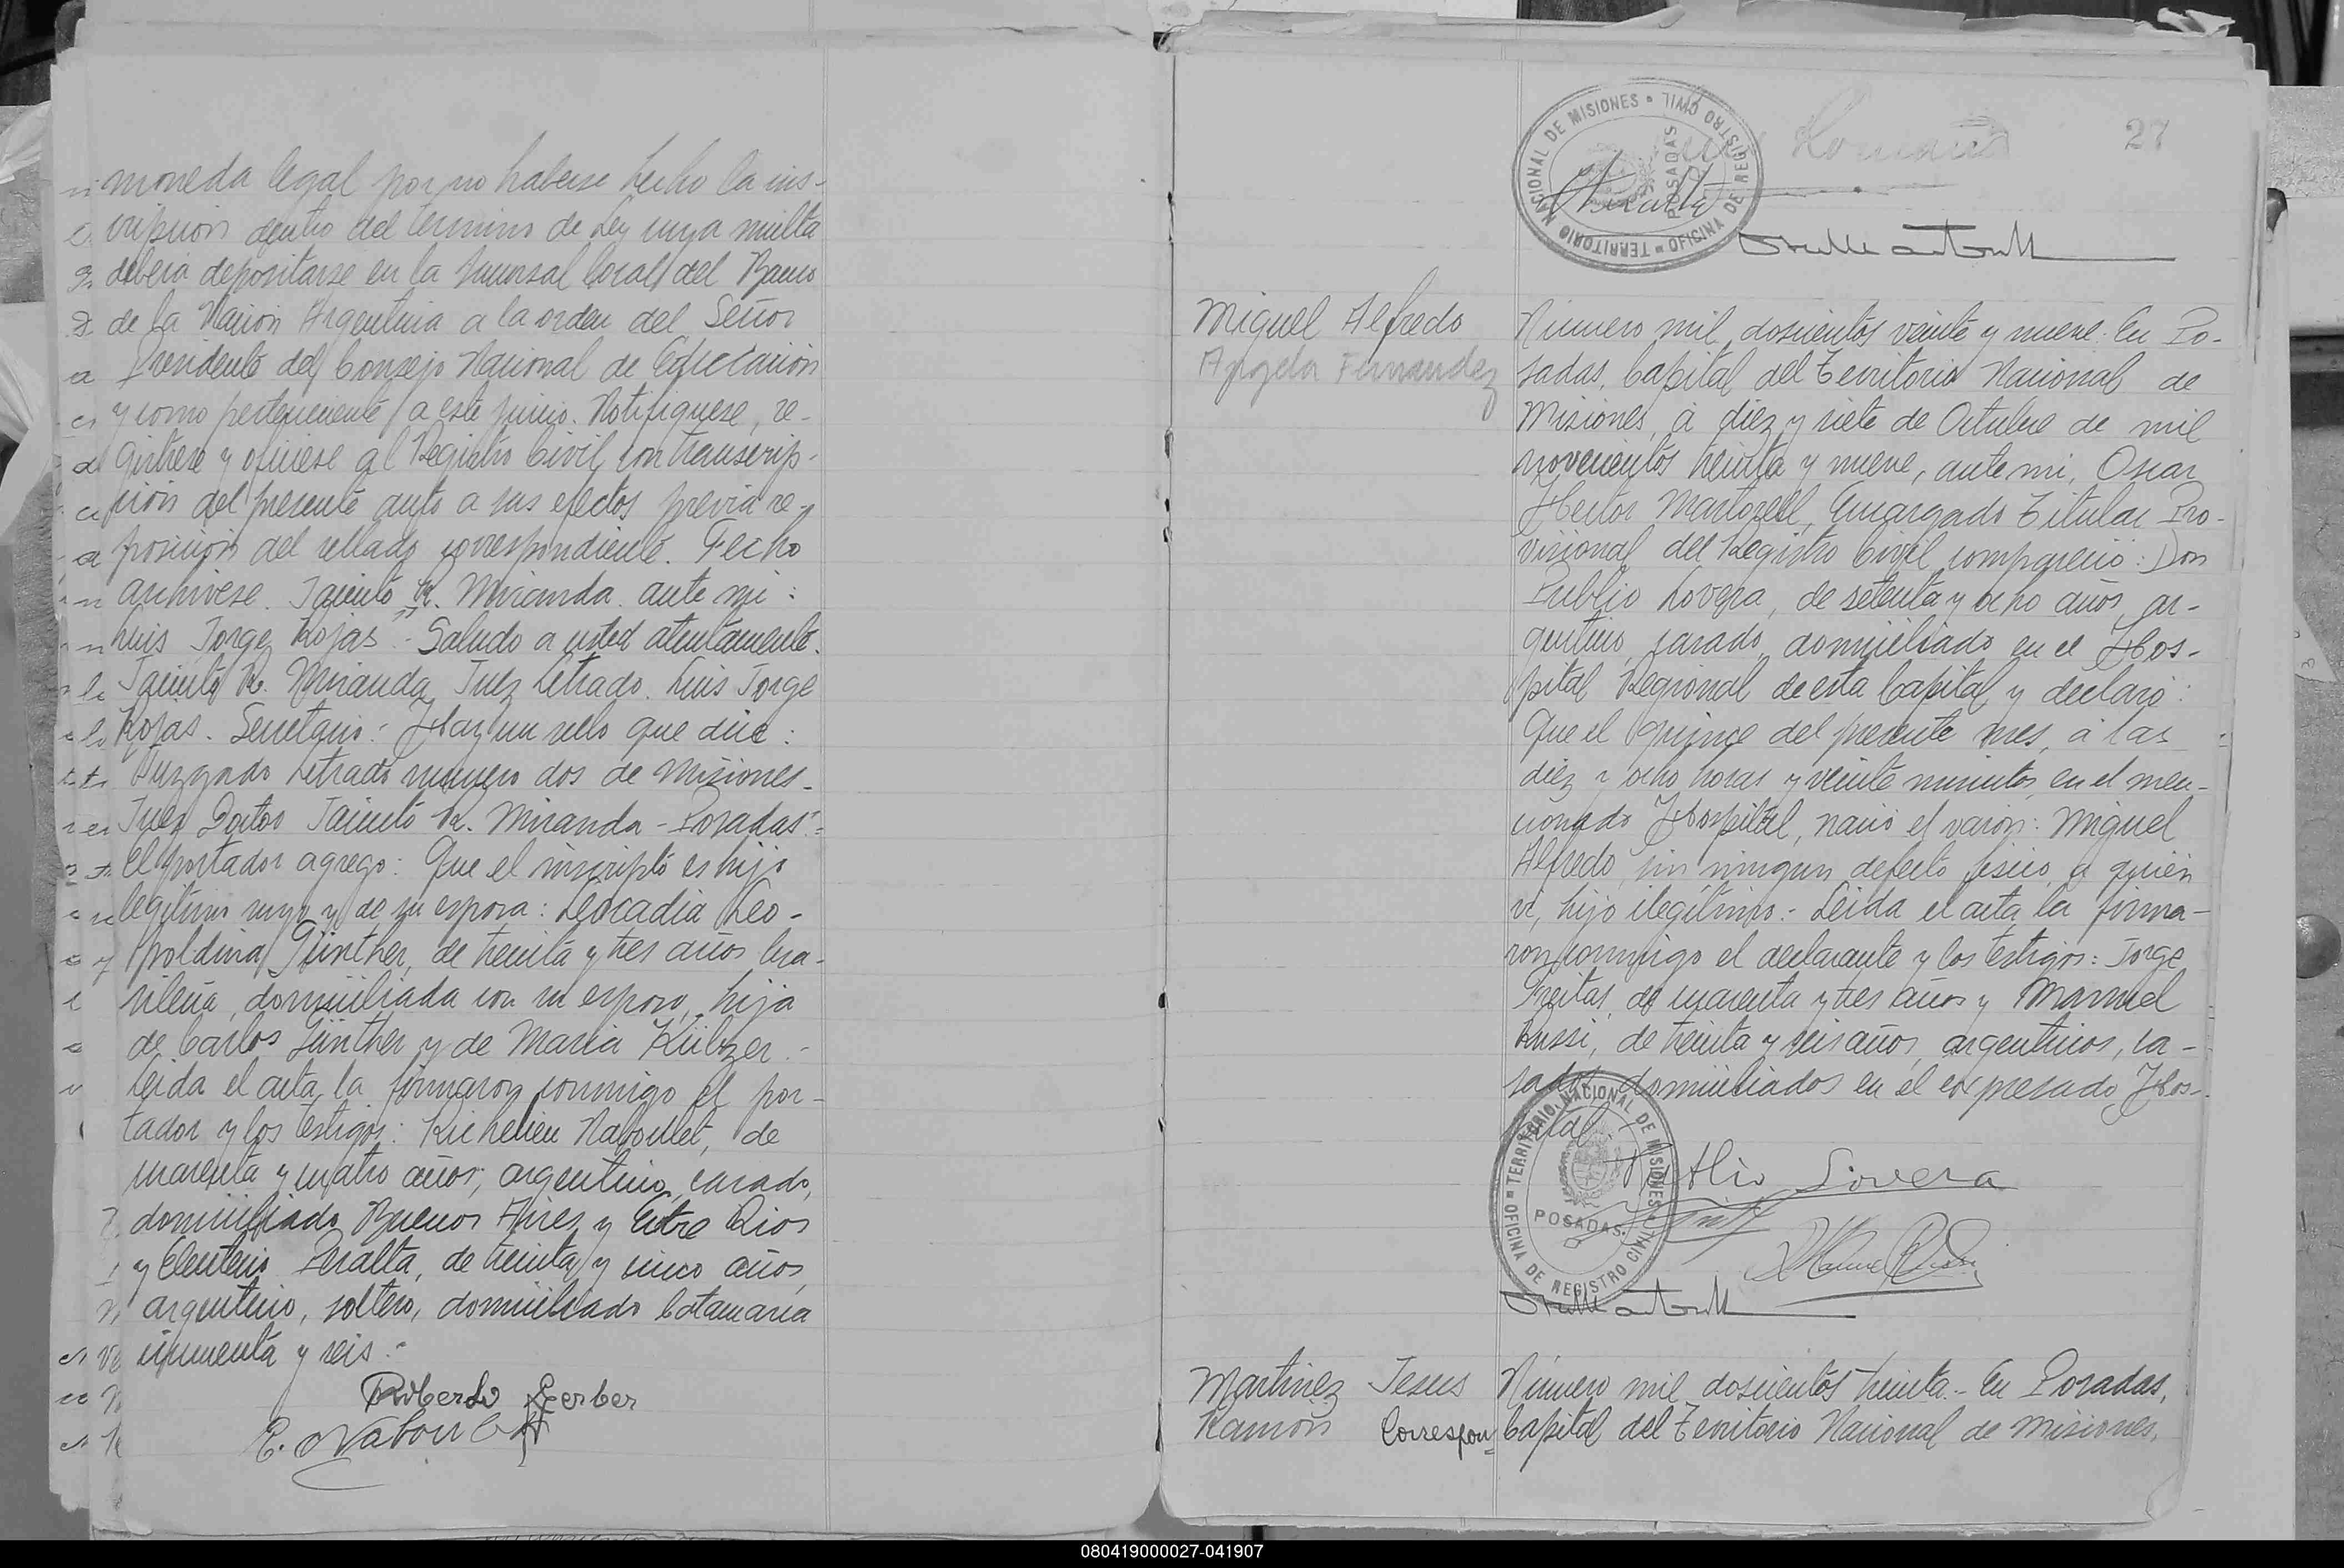 moneda legal por no haberse hecho la ins-
cripcion dentro del termino de Ley cuya multa
deberá depositarse en la sucursal local del Banco
de la Nación Argentina a la orden del Señor
Presidente del Consejo Nacional de Educación
y como perteneciente a este juicio. Notifiquese, re-
gistrese y oficiese al Registro Civil con transcrip-
ción del presente auto a sus efectos previa re-
posición del sellado correspondiente. Fecho
archivese. Jacinto R. Miranda. ante mi:
Luis Jorge Rojas". Saludo a usted atentamente.
Jacinto R. Miranda Juez Letrado. Luis Jorge
Rojas. Secretario: Hay un sello que dice:
Juzgado Letrado numero dos de Misiones-
Juez Doctor Jacinto R. Miranda - Posadas"=
el portador agrego: Que el inscripto es hijo
legitimo suyo y de su esposa: Leocadia Leo-
poldina Günther, de treinta y tres años bra-
sileña, domiciliada con su esposo, hija
de Carlos Günther y de Maria Kübzer.-
Leida el acta, la firmaron conmigo el por-
tador y los testigos: Richelieu Naboulet, de
cuarenta y cuatro años, argentino, casado,
domiciliado Buenos Aires y Entre Rios
y Eleuterio Peralta, de treinta y cinco años,
argentino, soltero, domiciliado Catamarca
cincuenta y seis.-
Roberto Gerber
E. Naboulet
27
TERRITORIO NACIONAL DE MISIONES
OFICINA DE REGISTRO CIVIL
POSADAS
Miguel Alfredo
Angela Fernandez
Número mil doscientos veinte y nueve. En Po-
sadas, Capital del Territorio Nacional de
Misiones, á diez y siete de Octubre de mil
novecientos treinta y nueve, ante mi, Oscar
Hector Martorell, Encargado Titular Pro-
visional del Registro Civil compareció: Don
Publio Lovera, de setenta y ocho años, ar-
gentino, casado, domiciliado en el Hos-
pital Regional de esta Capital y declaró:
Que el quince del presente mes, á las
diez y ocho horas y veinte minutos, en el men-
cionado Hospital, nació el varón: Miguel
Alfredo, sin ningun defecto fisico, a quien
vi, hijo ilegitimo.- Leida el acta la firma-
ron conmigo el declarante y los testigos: Jorge
Freitas, de cuarenta y tres años y Manuel
Russi, de treinta y seis años, argentinos, ca-
sados, domiciliados en el expresado Hos-
pital.
Publio Lovera
TERRITORIO NACIONAL DE MISIONES
OFICINA DE REGISTRO CIVIL
POSADAS.
Martinez Jesus
Ramón Correspon-
Número mil doscientos treinta.- En Posadas,
Capital del Territorio Nacional de Misiones,
080419000027-041907